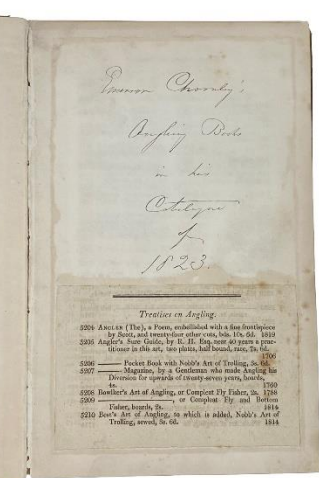 Emerson Charnley's
Angling Books
in his
Catalogue
of
1823.
Treatises on Angling.
5204 ANGLER (The), a Poem, embellished with a fine frontispiece
by Scott, and twenty-four other cuts, bds. 10s. 6d. 1819
5205 Angler's Sure Guide, by R. H. Esq. near 40 years a prac-
titioner in this art, two plates, half bound, rare, 7s. 6d.
1706
5206 ——— Pocket Book with Nobb's Art of Trolling, 5s. 6d.
5207 ——— Magazine, by a Gentleman who made Angling his
Diversion for upwards of twenty-seven years, boards,
4s. 1760
5208 Bowlker's Art of Angling, or Compleat Fly Fisher, 2s. 1788
5209 ———, or Compleat Fly and Bottom
Fisher, boards, 2s. 1814
5210 Best's Art of Angling, to which is added, Nobb's Art of
Trolling, sewed, 3s. 6d. 1814